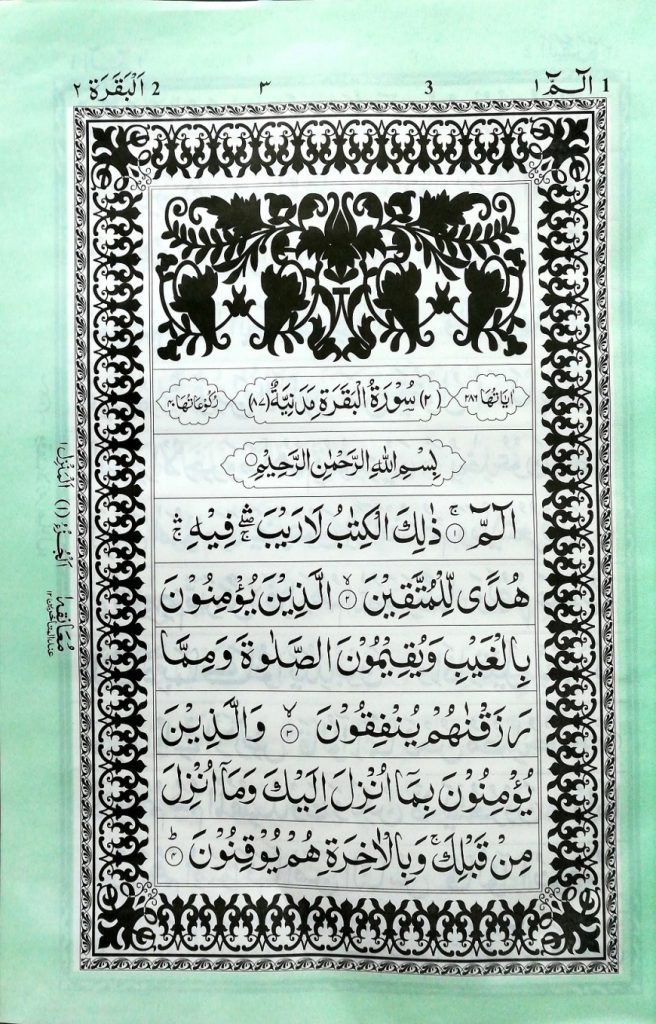 1 الٓـمّٓ ١ 3 ٣ 2 اَلْبَقَرَة ٢
اٰيَاتُهَا ٢٨٦ (٢) سُوْرَةُ الْبَقَرَةِ مَدَنِيَّةٌ (٨٧) رُكُوْعَاتُهَا ٤٠
بِسْمِ اللّٰهِ الرَّحْمٰنِ الرَّحِيْمِ
الٓـمّٓ ۚ ١ ذٰلِكَ الْكِتٰبُ لَا رَيْبَ ۛۖ فِيْهِ ۛ
هُدًى لِّلْمُتَّقِيْنَ ۙ ٢ الَّذِيْنَ يُؤْمِنُوْنَ
بِالْغَيْبِ وَيُقِيْمُوْنَ الصَّلٰوةَ وَمِمَّا
رَزَقْنٰهُمْ يُنْفِقُوْنَ ۙ ٣ وَالَّذِيْنَ
يُؤْمِنُوْنَ بِمَآ اُنْزِلَ اِلَيْكَ وَمَآ اُنْزِلَ
مِنْ قَبْلِكَ ۚ وَبِالْاٰخِرَةِ هُمْ يُوْقِنُوْنَ ؕ ٤
اَلْجُزْءُ (١) اَلْمَنْزِلُ ١
مُعَانقه ١